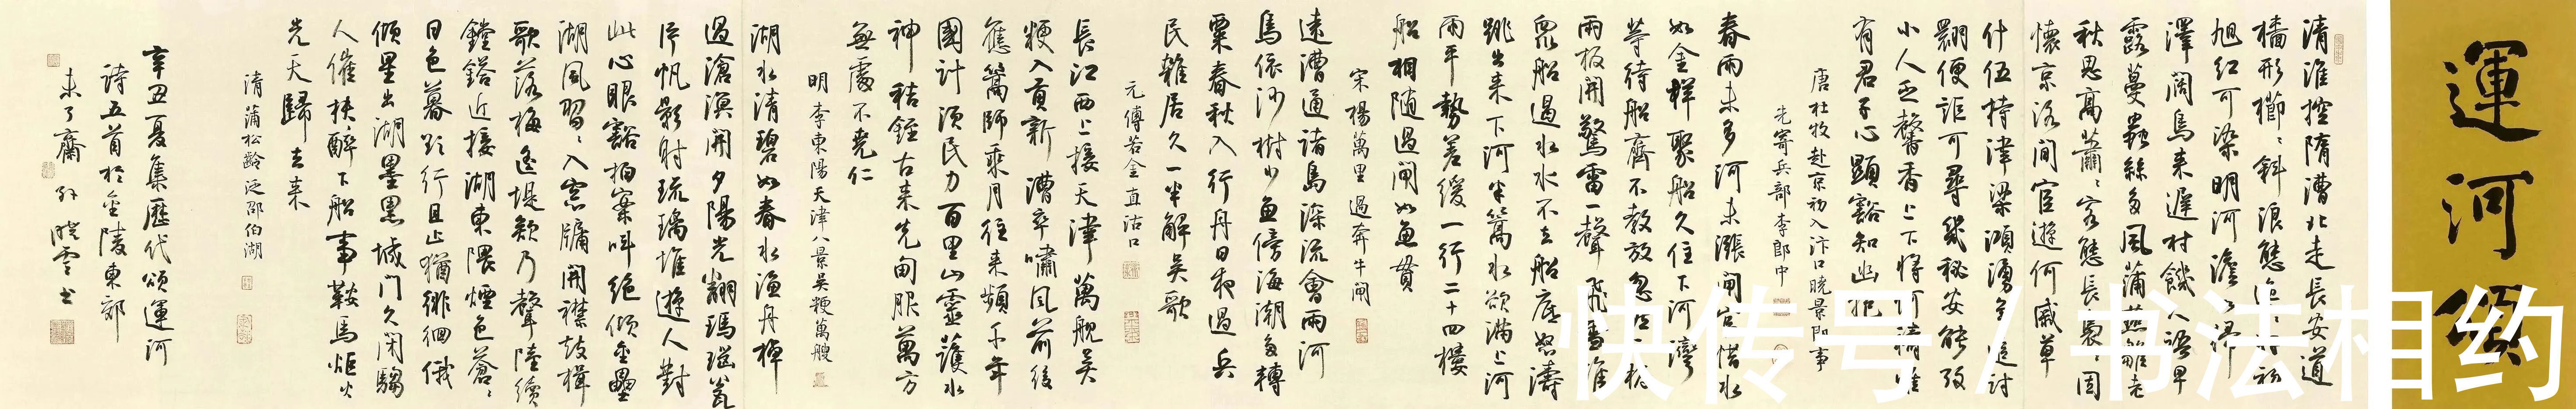 運河頌
清淮控隋漕北走長安道
檣形櫛櫛斜浪態迤迤好初
旭紅可染明河澹如掃
澤闊鳥來遲村饑人語早
露蔓蟲絲多風蒲燕雛老
秋思高蕭蕭客愁長裊裊因
懷京洛間宦遊何戚草
什伍持津梁澒湧爭追討
翾便詎可尋幾秘安能考
小人乏馨香上下將何禱唯
有君子心顯豁知幽抱
唐杜牧赴京初入汴口曉景即事
先寄兵部李郎中
春雨未多河未漲閘官惜水
如金樣聚船久住下河灣
等待船齊不教放忽然三板
兩板開驚雷一聲飛雪堆
眾船過水水不去船底怒濤
跳出來下河半篙水欲滿上河
兩平勢差緩一行二十四樓
船相隨過閘如魚貫
宋楊萬里過奔牛閘
遠漕通諸島深流會兩河
鳥依沙樹少魚傍海潮多轉
粟春秋入行舟日夜過兵
民雜居久一半解吳歌
元傅若金直沽口
長江西上接天津萬舰吳
粳入貢新漕卒嘯風前後
應篙師乘月往來頻千年
國計須民力百里山靈護水
神秸銍古來先甸服萬方
無處不堯仁
明李東陽天津八景吳粳萬艘
湖水清碧如春水漁舟棹
過滄溟開夕陽光翻瑪瑙瓮
片帆影射琉璃堆遊人對
此心眼豁拍案叫絕傾金罍
湖風習習入窗牖開襟鼓楫
歌落梅遙堤欸乃聲陸續
鏜鎝近接湖東隈煙色蒼蒼
日色暮欲行且止猶徘徊俄
傾星出湖墨黑城門久閉騶
人催扶醉下船事鞍馬炬火
光天歸去來
清蒲松齡泛邵伯湖
辛丑夏集歷代頌運河
詩五首於金陵東郊
未了齋 孫曉雲書
快传号/书法相约